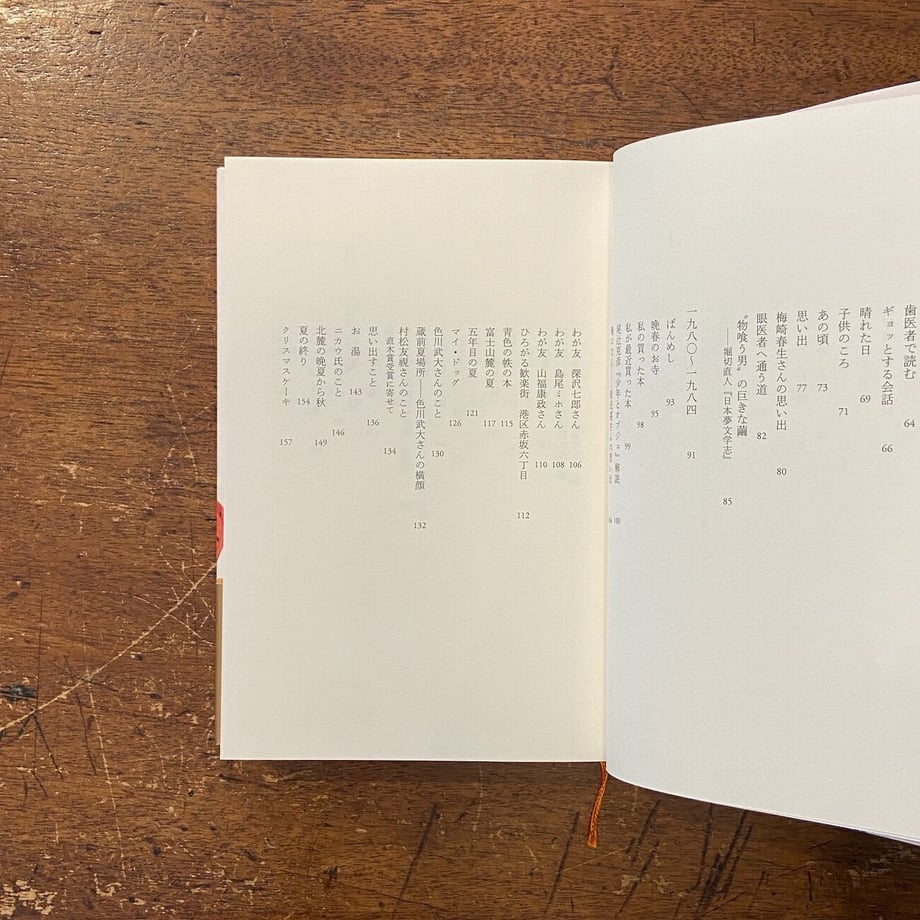 歯医者で読む 64
ギョッとする会話 66
晴れた日 69
子供のころ 71
あの頃 73
思い出 77
梅崎春生さんの思い出 80
眼医者へ通う道 82
〝物喰う男〟の巨きな繭
――堀切直人『日本夢文学志』 85
一九八〇〜一九八四 91
ばんめし 93
晩春のお寺 95
私の買った本 98
私が最近買った本 99
『少年とオブジェ』解説 100
わが友 深沢七郎さん 106
わが友 島尾ミホさん 108
わが友 山福康政さん 110
ひろがる歓楽街 港区赤坂六丁目 112
青色の帙の本 115
富士山麓の夏 117
五年目の夏 121
マイ・ドッグ 126
色川武大さんのこと 130
蔵前夏場所――色川武大さんの横顔 132
村松友視さんのこと
直木賞受賞に寄せて 134
思い出すこと 136
お湯 143
ニカウ氏のこと 146
北麓の晩夏から秋 149
夏の終り 154
クリスマスケーキ 157